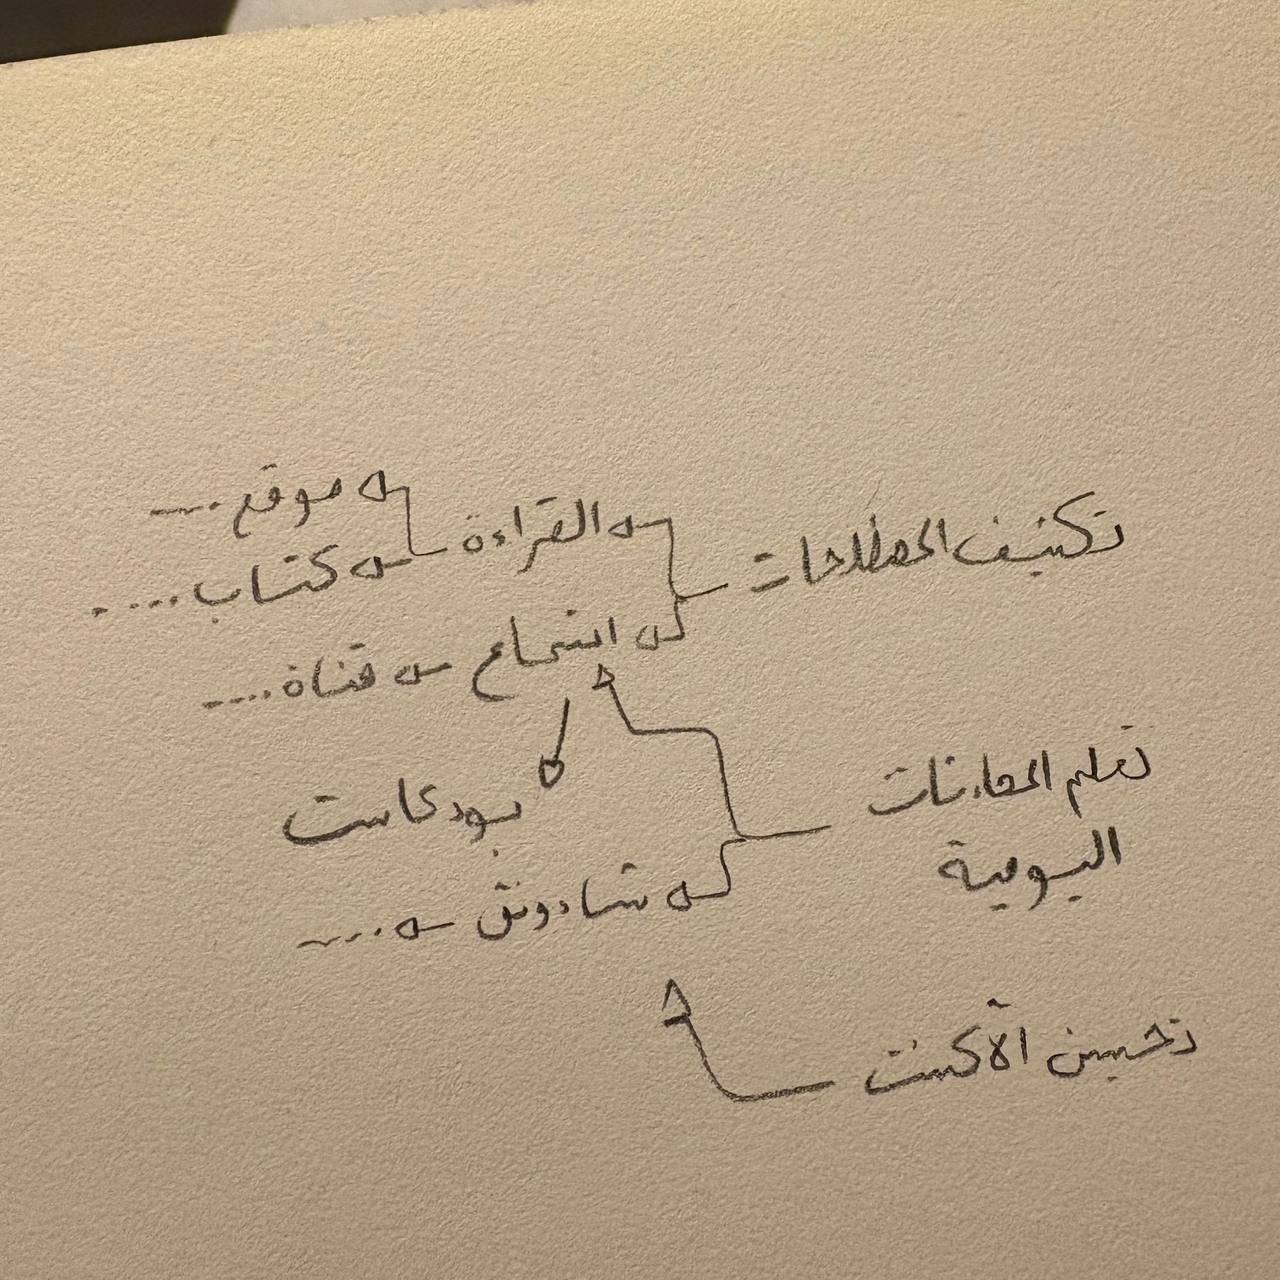 تكثيف المصطلحات
القراءة
موقع ....
كتاب ....
استماع
قناة ....
بودكاست
تعلم المحادثات
اليومية
شادونق ....
تحسين الأكسنت